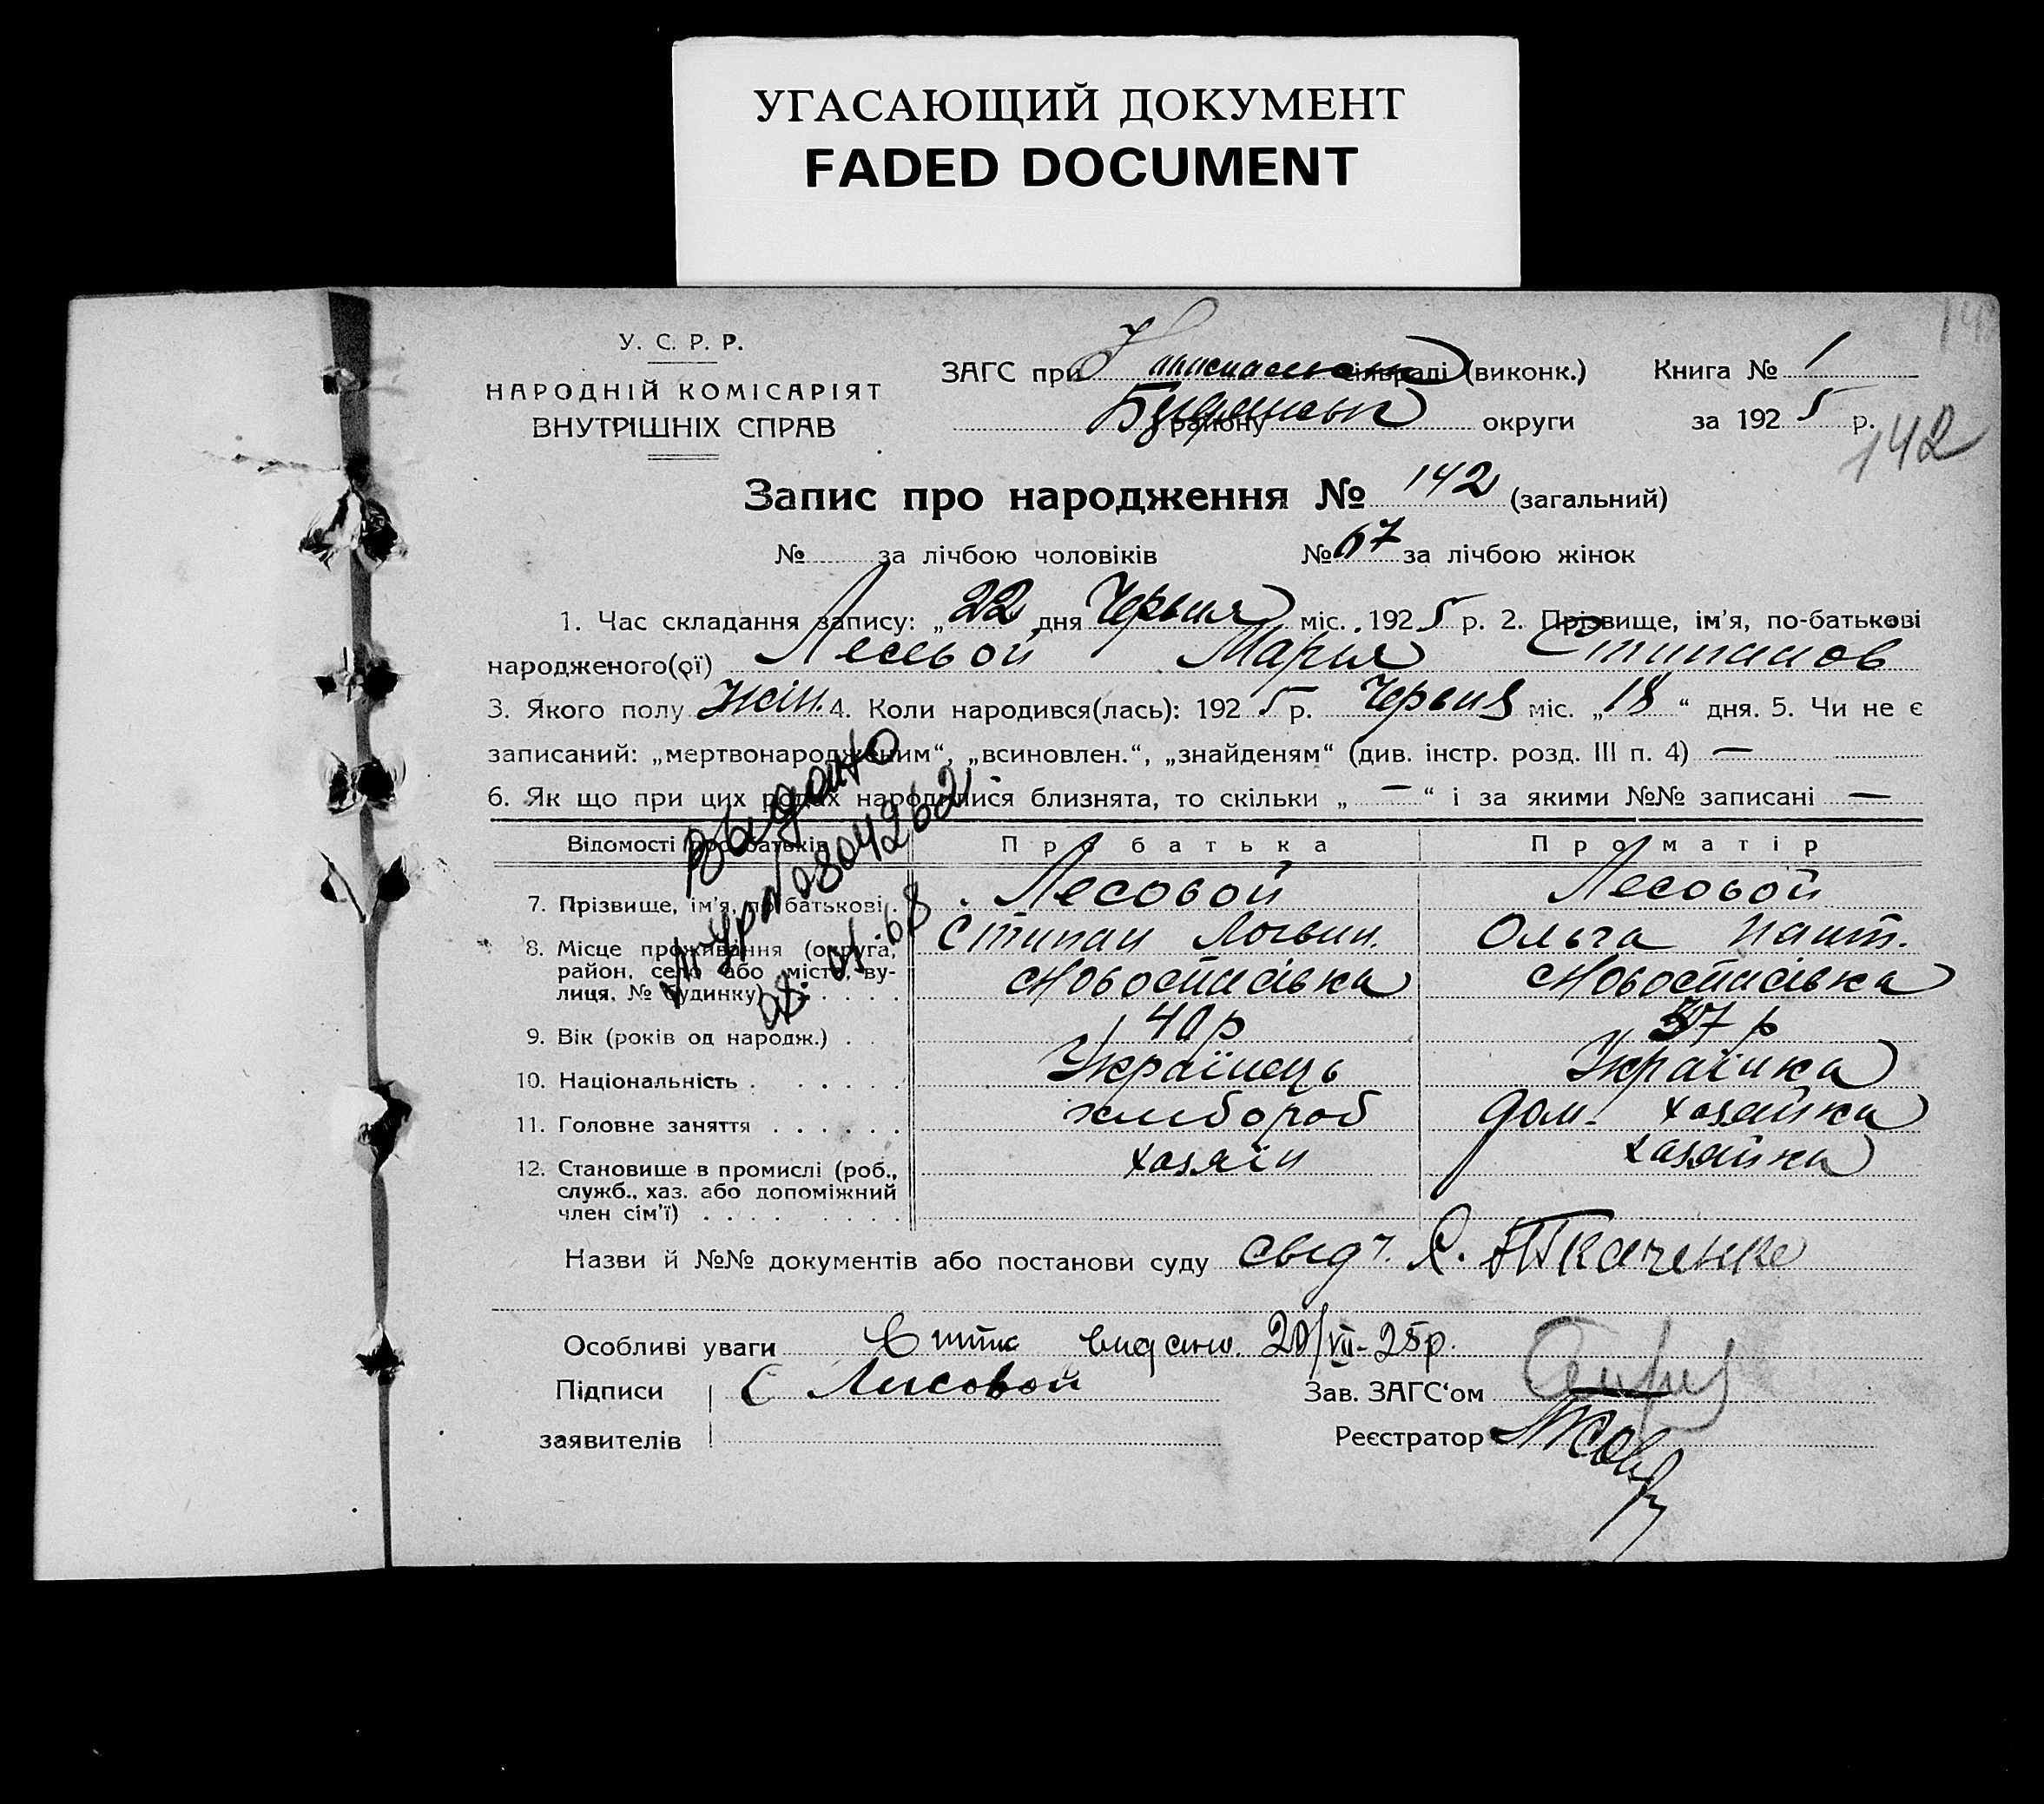 УГАСАЮЩИЙ ДОКУМЕНТ
FADED DOCUMENT
142
У. С. Р. Р.
НАРОДНІЙ КОМІСАРІЯТ
ВНУТРІШНІХ СПРАВ
ЗАГС при сільраді (виконк.) Книга № 1
району округи за 1925 р.
Запис про народження № 142 (загальний)
№ за лічбою чоловіків № 67 за лічбою жінок
1. Час складання запису: „22 дня Червня міс. 1925 р. 2. Прізвище, ім'я, по-батькові
народженого(ої) Лесевой Марія Стипанов
3. Якого полу Жін. 4. Коли народився(лась): 1925 р. Червня міс. „18“ дня. 5. Чи не є
записаний: „мертвонародженим“, „всиновлен.“, „знайденям“ (див. інстр. розд. III п. 4) —
6. Як що при цих родах народилися близнята, то скільки „ — “ і за якими №№ записані —
Відомості про батьків Про батька Про матір
7. Прізвище, ім'я, по батькові. Лесовой Лесовой
Стипан Логвин. Ольга Пант.
8. Місце проживання (округа, район, село або місто, вулиця, № будинку) Новоспасівка Новоспасівка
9. Вік (років од народж.) 40 р 37 р
10. Національність Українець Українка
11. Головне заняття хлибороб дом. хазяйка
12. Становище в промислі (роб., служб., хаз. або допоміжний член сім'ї) хазяїн хазяйка
выдано
804262
68
Назви й №№ документів або постанови суду свідч. Є. Ткаченко
Особливі уваги видано. 20/VII-25р.
Підписи заявителів С Лисовой
Зав. ЗАГС'ом
Реєстратор